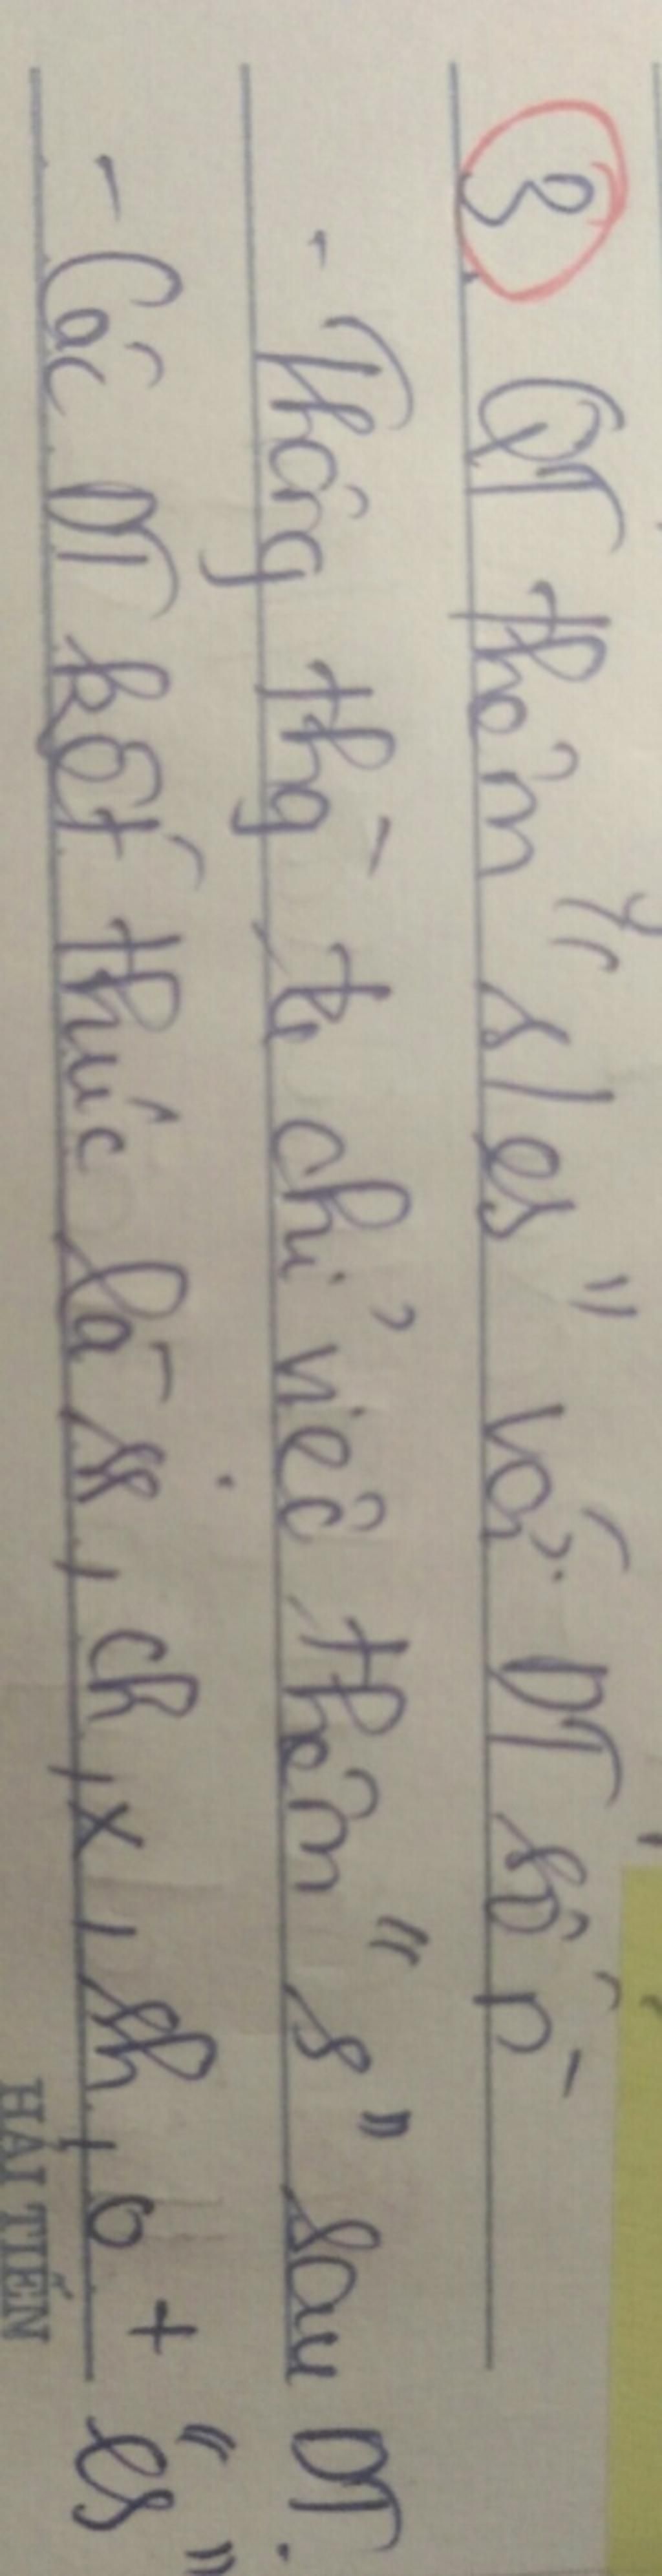 3. QT thêm "s/es" với DT số n̄
- Thôg thg̀ ta chỉ việc thêm "s" sau DT.
- Các DT kết thúc là ss, ch, x, sh, o + "es"
HẢI TIẾN